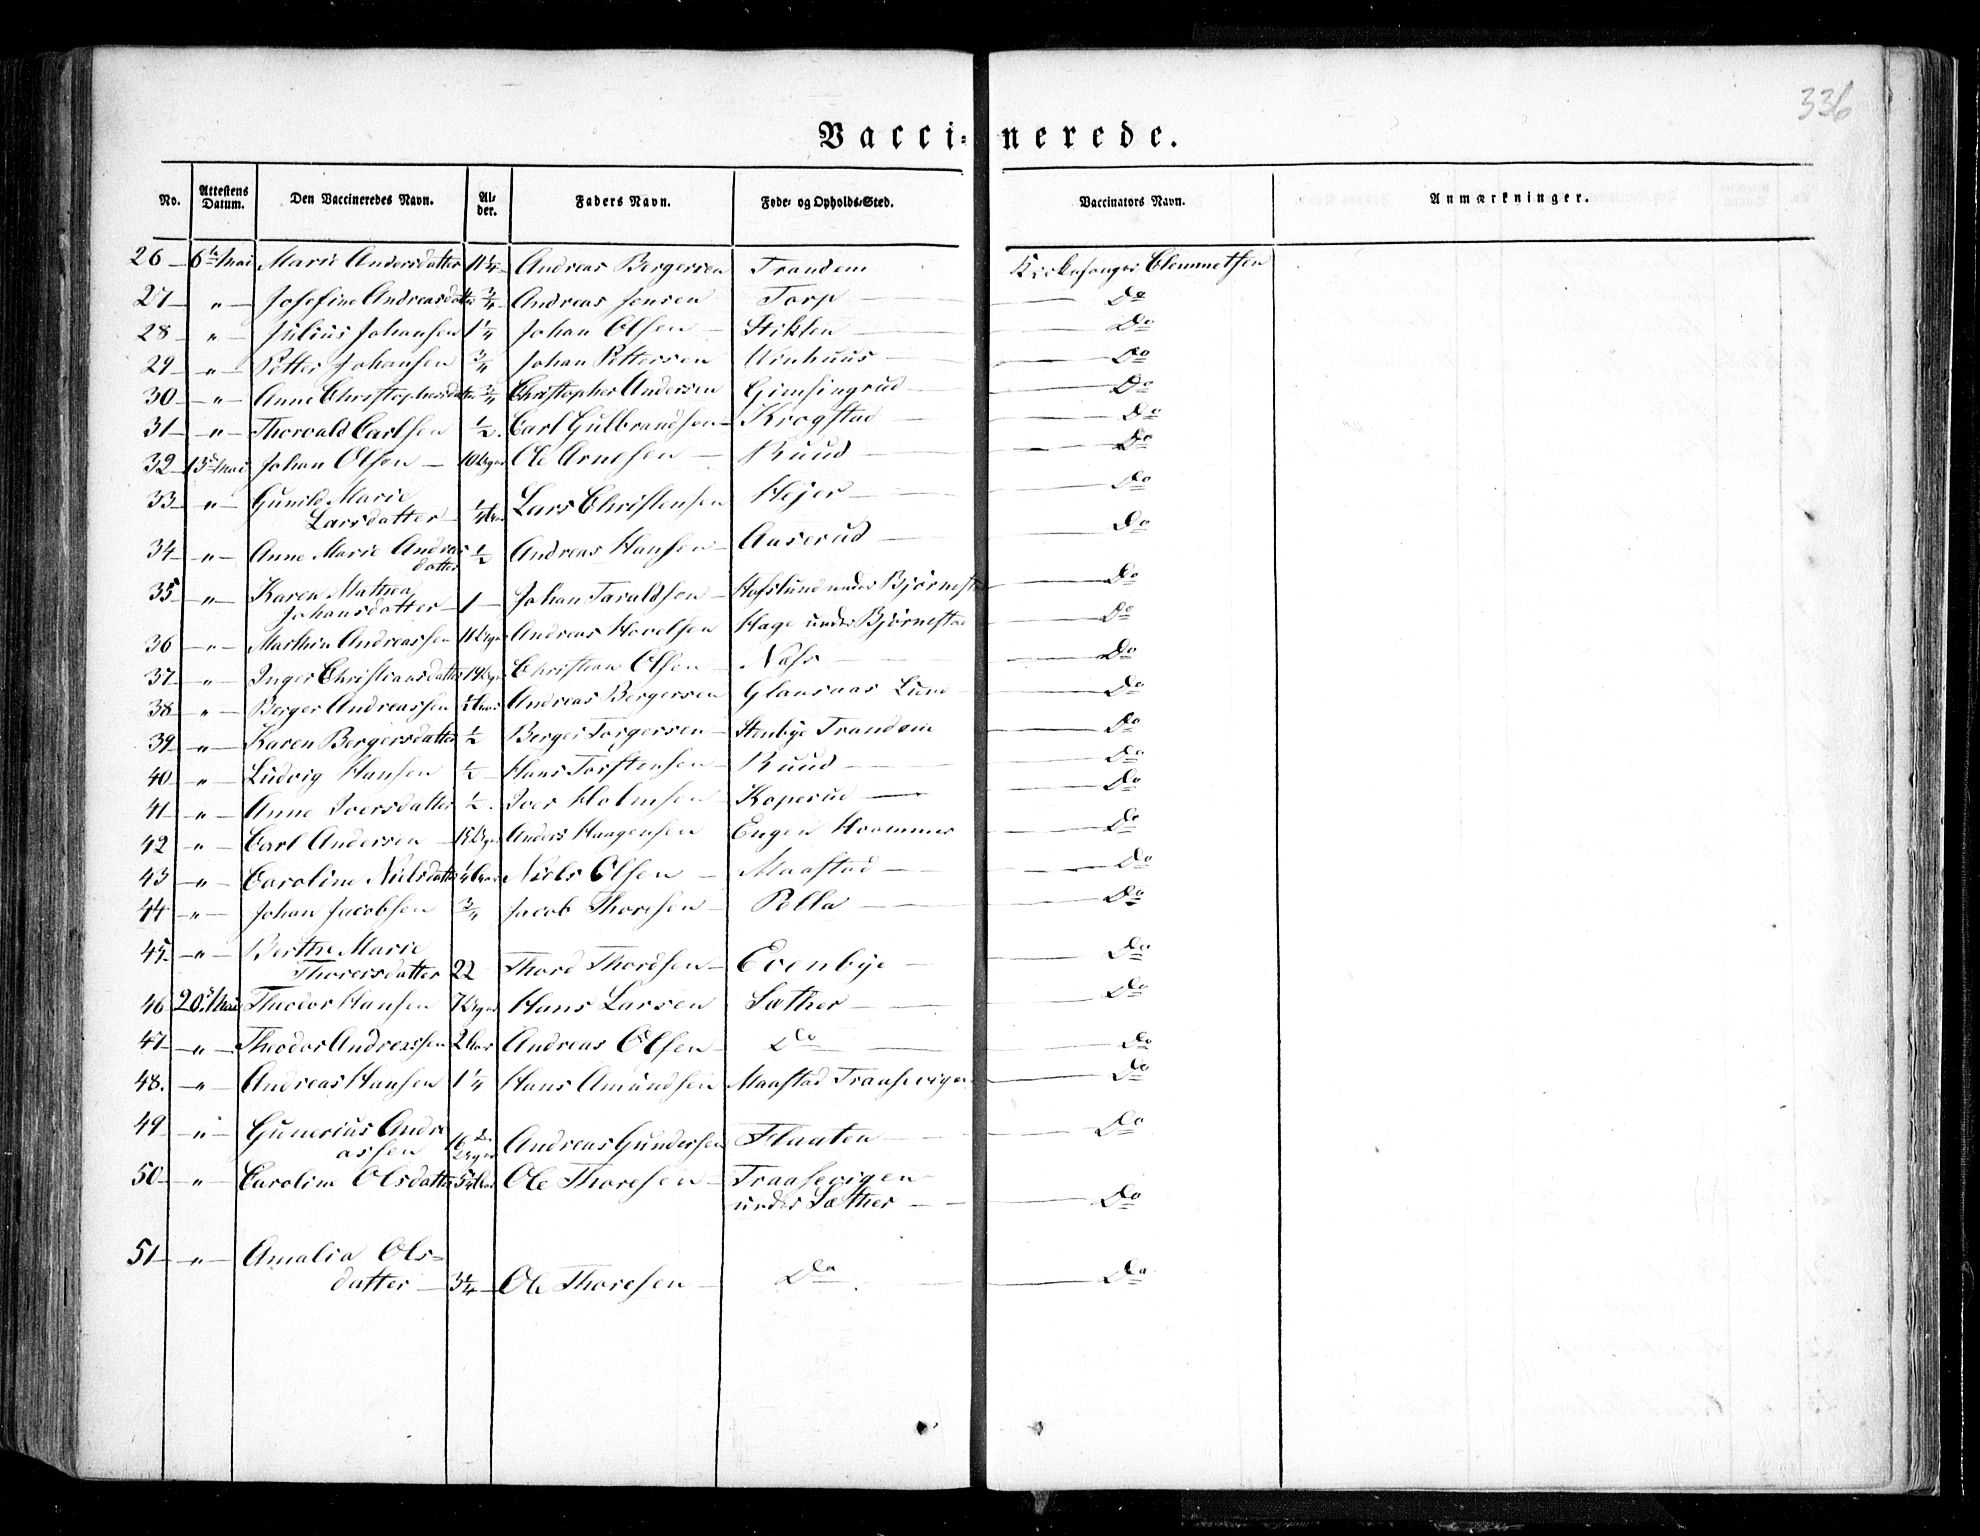 336
Vacci- nerede.
No. Attestens Datum. Den Vaccineredes Navn. Al- der. Faders Navn. Føde- og Opholds-Sted. Vaccinators Navn. Anmærkninger.
26 6te Mai Marie Andersdatter 11 1/4 Andreas Bergersen Trandem Kirkesanger Clemmetsen
27 " Josefine Andreasdatter 3/4 Andreas Jensen Torp Do
28 " Julius Johansen 1 1/4 Johan Olsen Stiklen Do
29 " Petter Johansen 3/4 Johan Pettersen Do
30 " Anne Christophersdatter 3/4 Christopher Andersen Gimsingrud Do
31 " Thorvald Carlsen 1/2 Carl Gulbrandsen Krogstad Do
32 13de Mai Johan Olsen 10 Uger Ole Arnesen Ruud Do
33 " Gunild Marie
Larsdatter 1/4 Lars Christensen Hejer Do
34 " Anne Marie Andreas
datter 1/2 Andreas Hansen Aaserud Do
35 " Karen Mathea
Johansdatter 1 Johan Taraldsen Hafslund under Bjørnestad Do
36 " Marthin Andreassen 11 Uger Andreas Hovelsen Hage under Bjørnestad Do
37 " Inger Christiansdatter 14 Uger Christian Olsen Næss Do
38 " Berger Andreassen Andreas Bergersen Glausaas Lund Do
39 " Karen Bergersdatter 1/2 Berger Torgersen Stenbye Trandem Do
40 " Ludvig Hansen 1/2 Hans Torstensen Ruud Do
41 " Anne Iversdatter 1/2 Iver Holmsen Koperud Do
42 " Carl Andersen 15 Uger Anders Haagensen Engen Haammer Do
43 " Caroline Nielsdatter Niels Olsen Maastad Do
44 " Johan Jacobsen 3/4 Jacob Thoresen Pella Do
45 " Berthe Marie
Thorersdatter 22 Thord Thordsen Evenbye Do
46 20de Mai Theodor Hansen 7 Uger Hans Larsen Sæther Do
47 " Theodor Andreassen 2 Aar Andreas Olsen Do Do
48. " Andreas Hansen 1 1/4 Hans Amundsen Maastad Traasevigen Do
49 " Gunerius Andre
assen 16 Uger Andreas Gundersen Flaaten Do
50 " Caroline Olsdatter Ole Thoresen Traasevigen
under Sæther Do
51 " Amalia Ols-
datter 3 1/4 Ole Thoresen Do Do